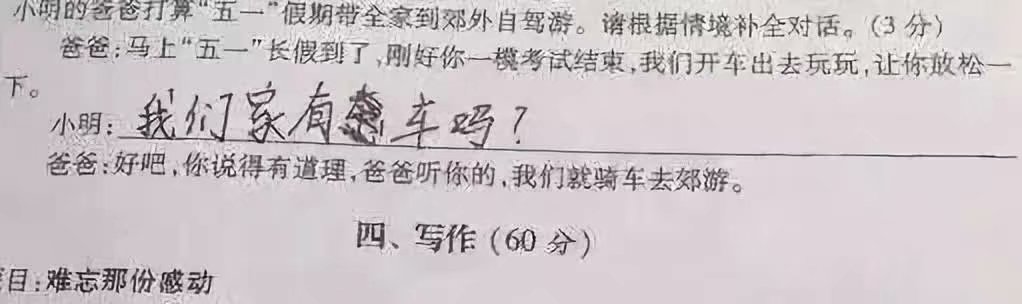 小明的爸爸打算“五一”假期带全家到郊外自驾游。请根据情境补全对话。(3分)
爸爸:马上“五一”长假到了,刚好你一模考试结束,我们开车出去玩玩,让你放松一
下。
小明:我们家有车吗?
爸爸:好吧,你说得有道理,爸爸听你的,我们就骑车去郊游。
四、写作(60分)
目:难忘那份感动